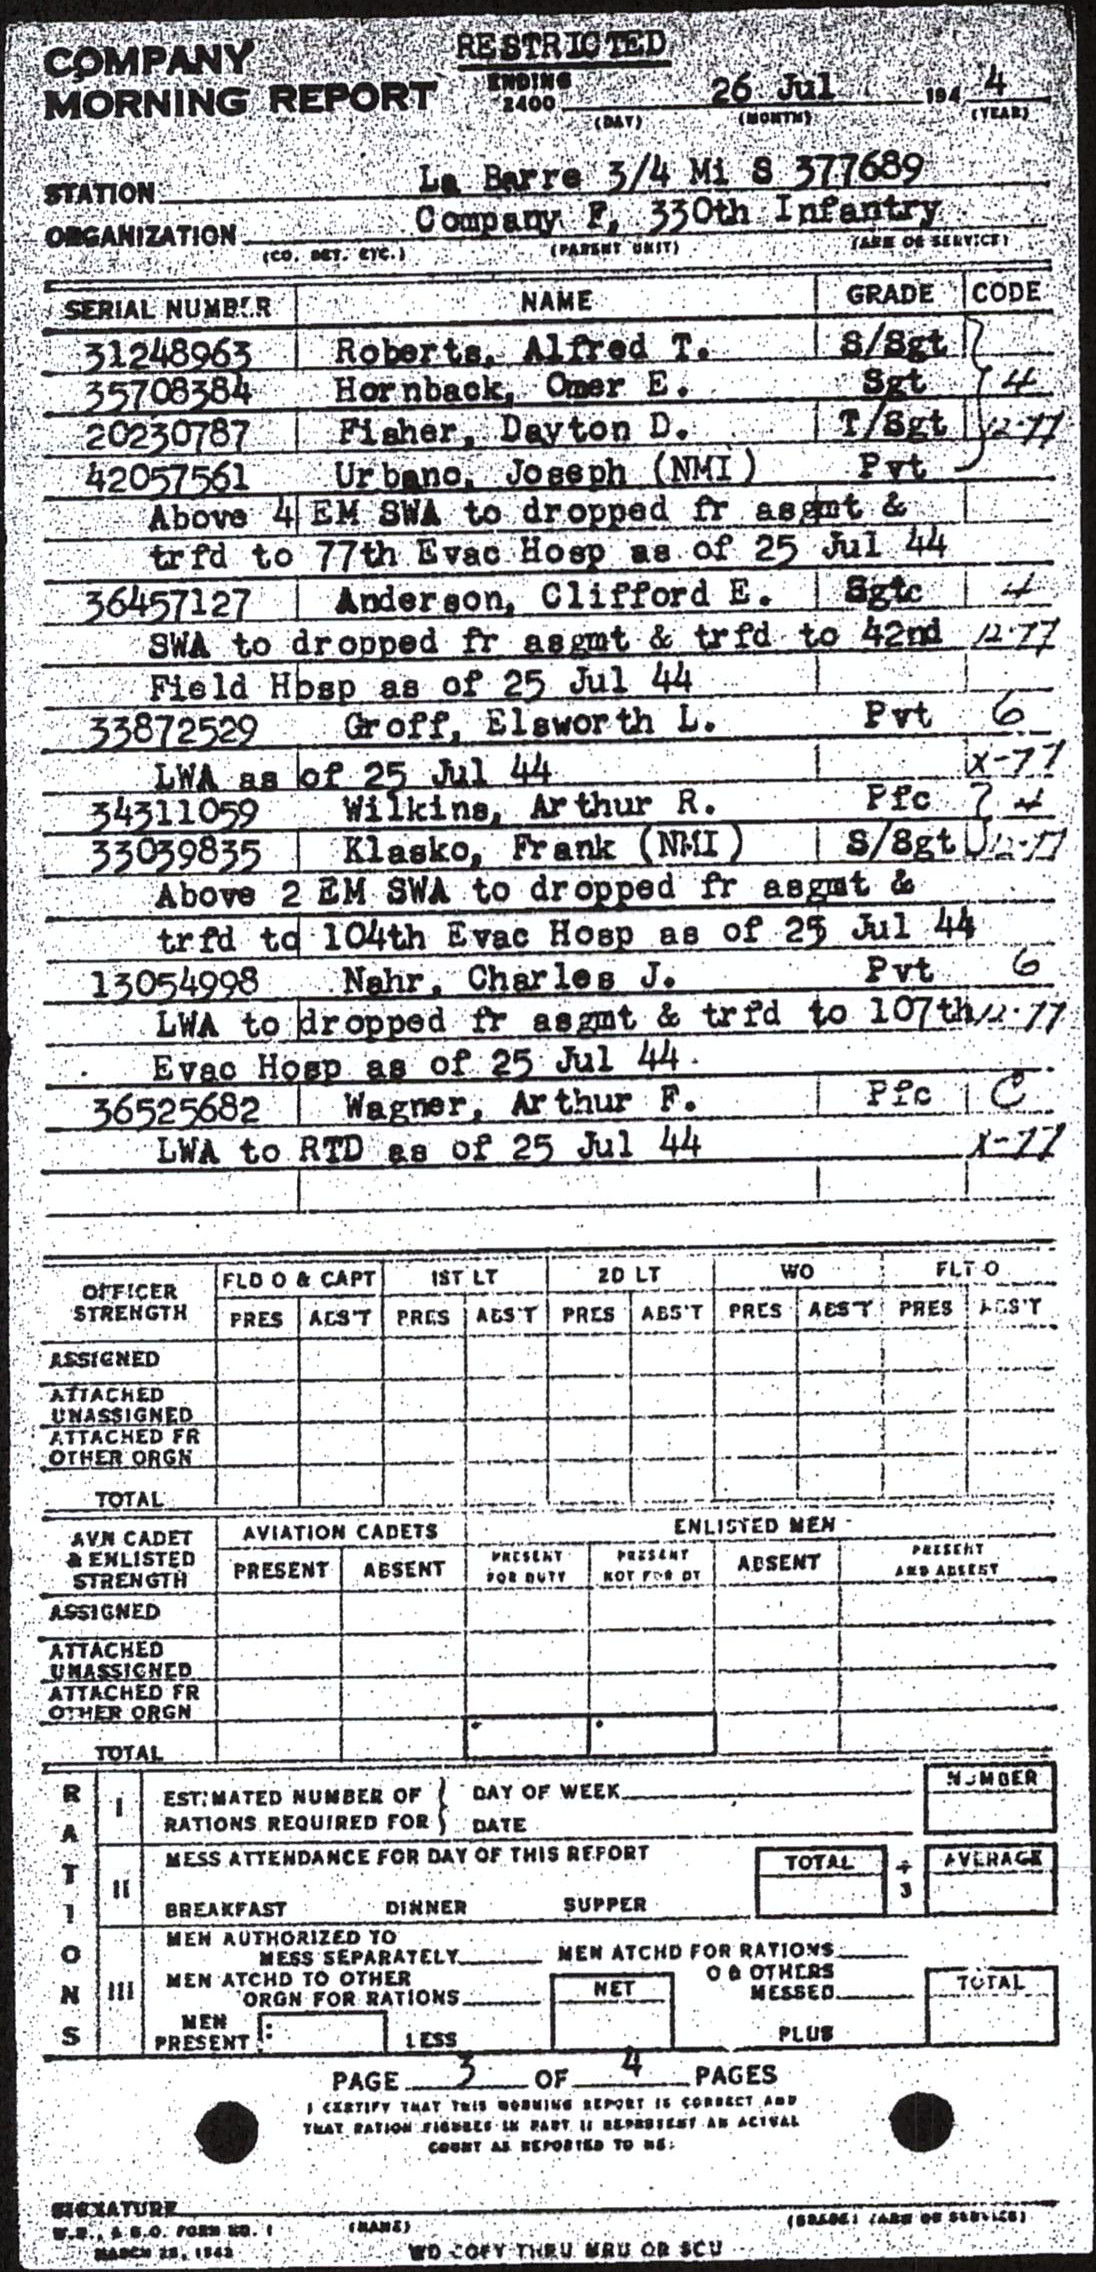 RESTRICTED
COMPANY
MORNING REPORT
ENDING
2400 26 Jul 194 4
(DAY) (MONTH) (YEAR)
STATION La Barre 3/4 Mi S 377689
ORGANIZATION Company F, 330th Infantry
(CO. DET. ETC.) (PARENT UNIT) (ARM OR SERVICE)
SERIAL NUMBER NAME GRADE CODE
31248963 Roberts, Alfred T. S/Sgt
35708384 Hornback, Omer E. Sgt 4
20230787 Fisher, Dayton D. T/Sgt 12-77
42057561 Urbano, Joseph (NMI) Pvt
Above 4 EM SWA to dropped fr asgmt &
trfd to 77th Evac Hosp as of 25 Jul 44
36457127 Anderson, Clifford E. 4
SWA to dropped fr asgmt & trfd to 42nd 12-77
Field Hosp as of 25 Jul 44
33872529 Groff, Elsworth L. Pvt 6
LWA as of 25 Jul 44 X-77
34311059 Wilkins, Arthur R. Pfc 4
33039835 Klasko, Frank (NMI) S/Sgt 12-77
Above 2 EM SWA to dropped fr asgmt &
trfd to 104th Evac Hosp as of 25 Jul 44
13054998 Nahr, Charles J. Pvt 6
LWA to dropped fr asgmt & trfd to 107th 12-77
Evac Hosp as of 25 Jul 44
36525682 Wagner, Arthur F. Pfc
LWA to RTD as of 25 Jul 44 X-77
OFFICER
STRENGTH
FLD O & CAPT 1ST LT 2D LT WO FLT O
PRES ABS'T PRES ABS'T PRES ABS'T PRES ABS'T PRES ABS'T
ASSIGNED
ATTACHED
UNASSIGNED
ATTACHED FR
OTHER ORGN
TOTAL
AVN CADET
& ENLISTED
STRENGTH
AVIATION CADETS ENLISTED MEN
PRESENT ABSENT PRESENT FOR DUTY PRESENT NOT FOR DY ABSENT PRESENT AND ABSENT
ASSIGNED
ATTACHED
UNASSIGNED
ATTACHED FR
OTHER ORGN
TOTAL
RATIONS
I ESTIMATED NUMBER OF DAY OF WEEK NUMBER
RATIONS REQUIRED FOR DATE
II MESS ATTENDANCE FOR DAY OF THIS REPORT TOTAL ÷ 3 AVERAGE
BREAKFAST DINNER SUPPER
III MEN AUTHORIZED TO
MESS SEPARATELY MEN ATCHD FOR RATIONS
MEN ATCHD TO OTHER
ORGN FOR RATIONS NET O & OTHERS
MESSED TOTAL
MEN
PRESENT LESS PLUS
PAGE 3 OF 4 PAGES
I CERTIFY THAT THIS MORNING REPORT IS CORRECT AND
THAT RATION FIGURES IN PART II REPRESENT AN ACTUAL
COUNT AS REPORTED TO ME:
SIGNATURE
(NAME) (GRADE) (ARM OR SERVICE)
W.D., A.G.O. FORM NO. 1
MARCH 1943
WD COPY THRU MRU OR SCU